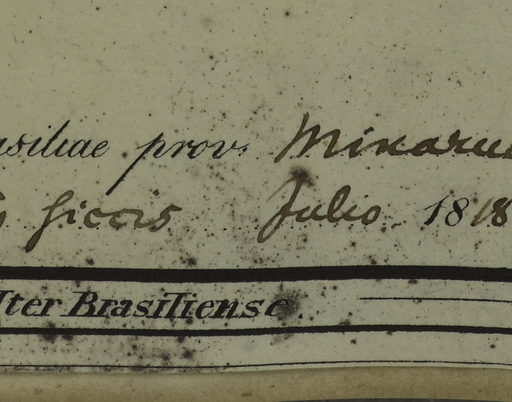 asiliae prov. Minaru
siccis Julio 1818
Iter Brasiliense.